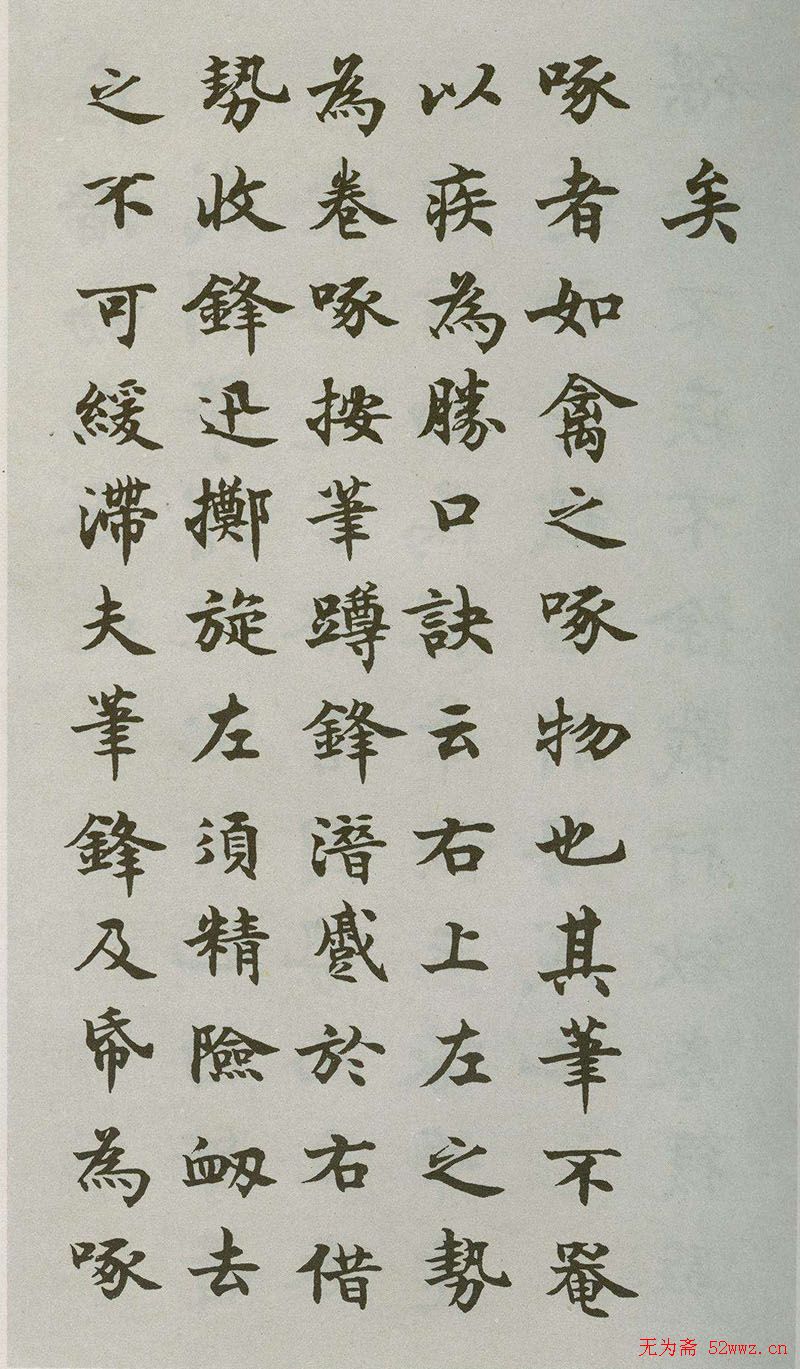 矣
啄者如禽之啄物也其筆不罨
以疾為勝口訣云右上左之勢
為卷啄按筆蹲鋒潛蹙於右借
勢收鋒迅擲旋左須精險衂去
之不可緩滯夫筆鋒及帋為啄
无为斋 52wwz.cn